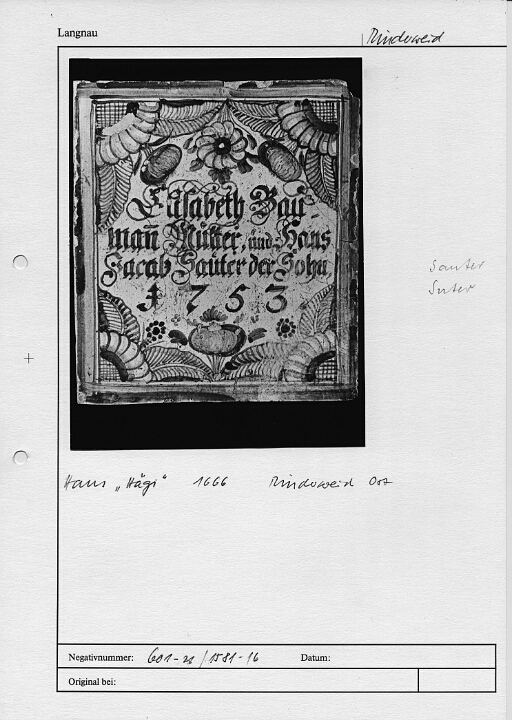 Langnau
Rinderweid
Elisabeth Bau-
man̄ Mutter, und Hans
Jacab Sauter der Sohn
1753
Sauter
Suter
Haus „Hägi“ 1666 Rinderweid Ost
Negativnummer: 601-22/1581-16 Datum:
Original bei: